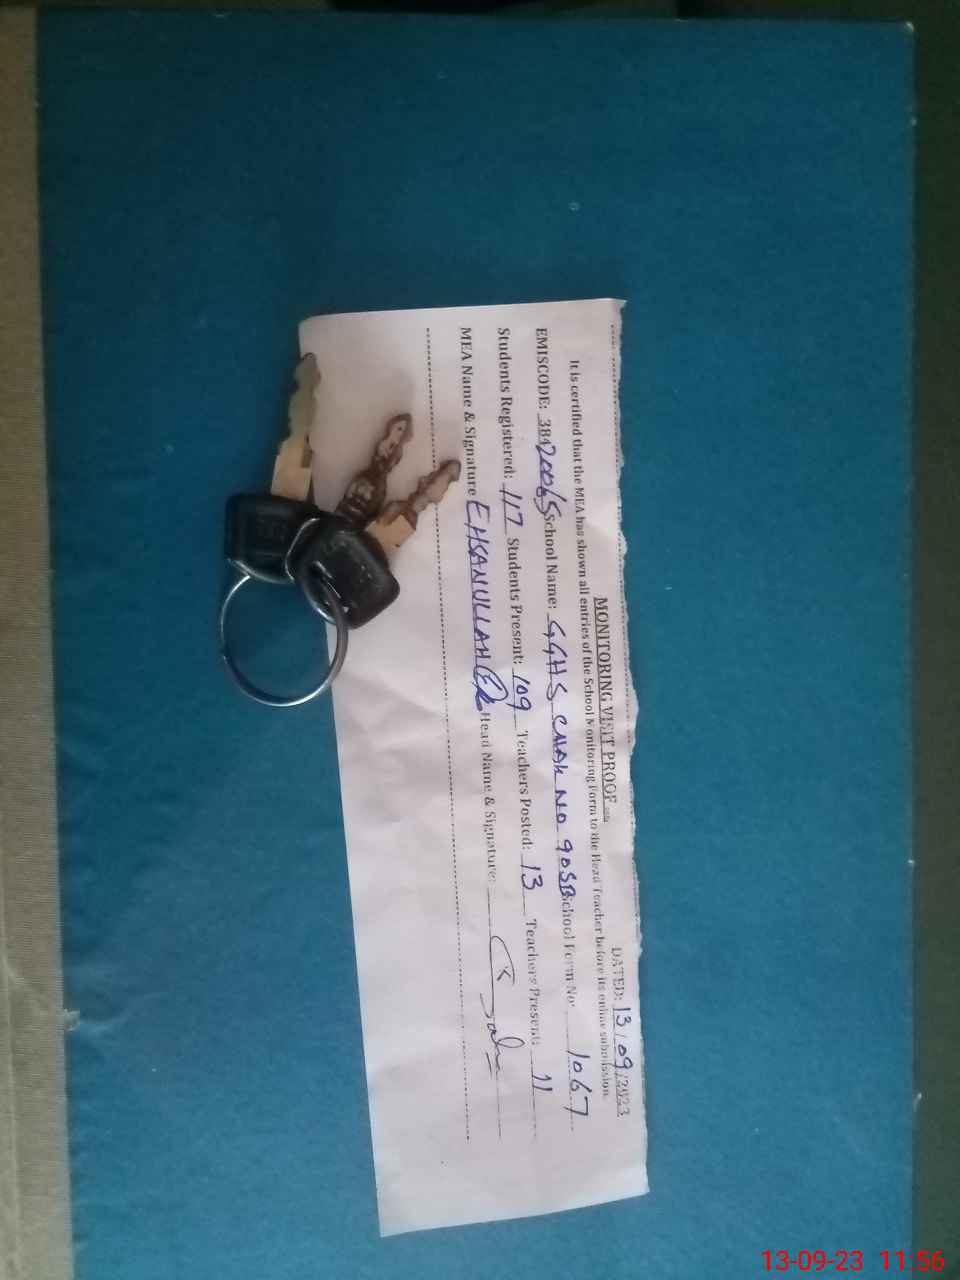 MONITORING VISIT PROOF
DATED: 13/09/2023
It is certified that the MEA has shown all entries of the School Monitoring Form to the Head Teacher before its online submission.
EMISCODE: 38420065 School Name: GGHS CHAK NO 90SB School Form No: 1067
Students Registered: 117 Students Present: 109 Teachers Posted: 13 Teachers Present: 11
MEA Name & Signature EHSANULLAH Head Name & Signature:
13-09-23 11:56